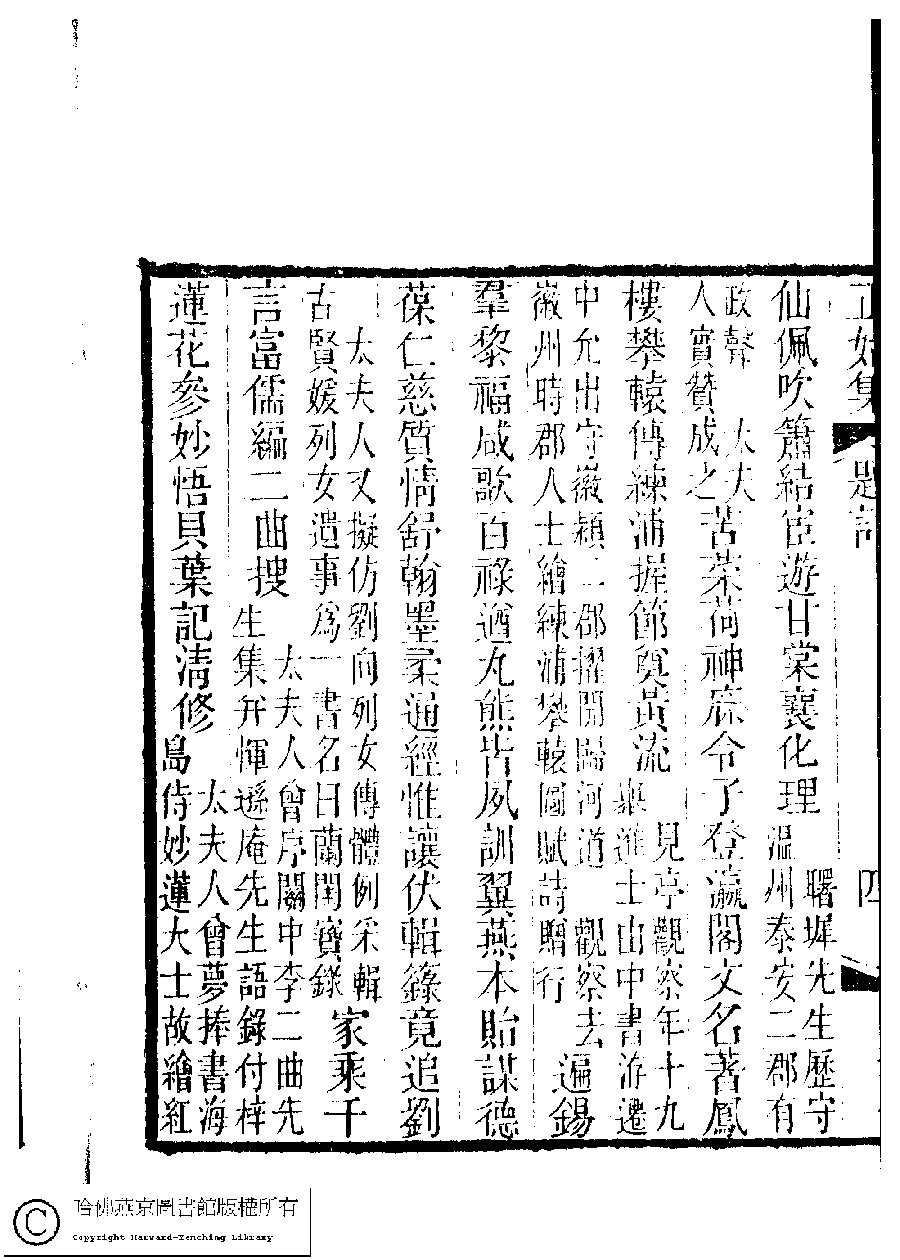 正始集 題詞 四
仙佩吹簫結宦遊甘棠襄化理
曙墀先生歷守
溫州泰安二郡有
政聲 太夫
人實贊成之
苦茶荷神庥令子登瀛閣文名著鳳
樓攀轅傳練浦握節奠黃流
見亭觀察年十九
舉進士由中書游遷
中允出守徽潁二郡擢開歸河道 觀察去
徽州時郡人士繪練浦攀轅圖賦詩贈行
遍錫
羣黎福咸歌百祿遒丸熊皆夙訓翼燕本貽謀德
葆仁慈質情舒翰墨柔通經惟讓伏輯籙竟追劉
太夫人又擬仿劉向列女傳體例采輯
古賢媛列女遺事爲一書名曰蘭閨寶錄
家乘千
言富儒編二曲搜
太夫人曾序關中李二曲先
生集幷惲遜庵先生語錄付梓
蓮花參妙悟貝葉記清修
太夫人曾夢捧書海
島侍妙蓮大士故繪紅
哈佛燕京圖書館版權所有
Copyright Harvard-Yenching Library